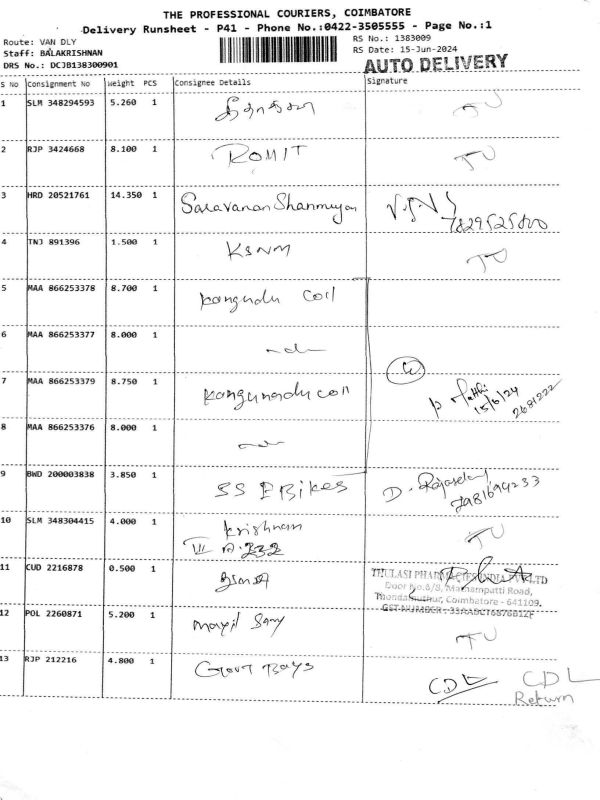 THE PROFESSIONAL COURIERS, COIMBATORE
Delivery Runsheet - P41 - Phone No.:0422-3505555 - Page No.:1
Route: VAN DLY
Staff: BALAKRISHNAN
DRS No.: DCJB138300901
RS No.: 1383009
RS Date: 15-Jun-2024
AUTO DELIVERY
S No Consignment No Weight PCS Consignee Details Signature
1 SLM 348294593 5.260 1
2 RJP 3424668 8.100 1 ROHIT TU
3 HRD 20521761 14.350 1 Saravanan Shanmugan
4 TNJ 891396 1.500 1 KSNM TU
5 MAA 866253378 8.700 1 Kongundu Coil
6 MAA 866253377 8.000 1 -do-
7 MAA 866253379 8.750 1 Kongunadu Coil 15/6/24
8 MAA 866253376 8.000 1 -do-
9 BWD 200003838 3.850 1 SS E Bikes
10 SLM 348304415 4.000 1 Krishnan TU
III A.232
11 CUD 2216878 0.500 1
THULASI PHARMACIES INDIA PVT LTD
Door No.8/8, Mathampatti Road,
Thondamuthur, Coimbatore - 641109.
12 POL 2260871 5.200 1 Mayil Samy TU
13 RJP 212216 4.800 1 Govt Boys CDL CDL
Return